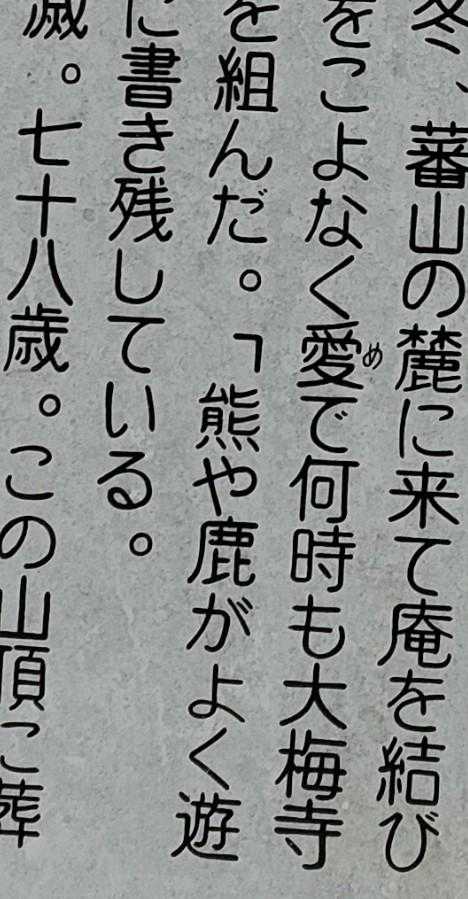 冬、蕃山の麓に来て庵を結び
をこよなく愛で何時も大梅寺
め
を組んだ。「熊や鹿がよく遊
に書き残している。
滅。七十八歳。この山頂に葬